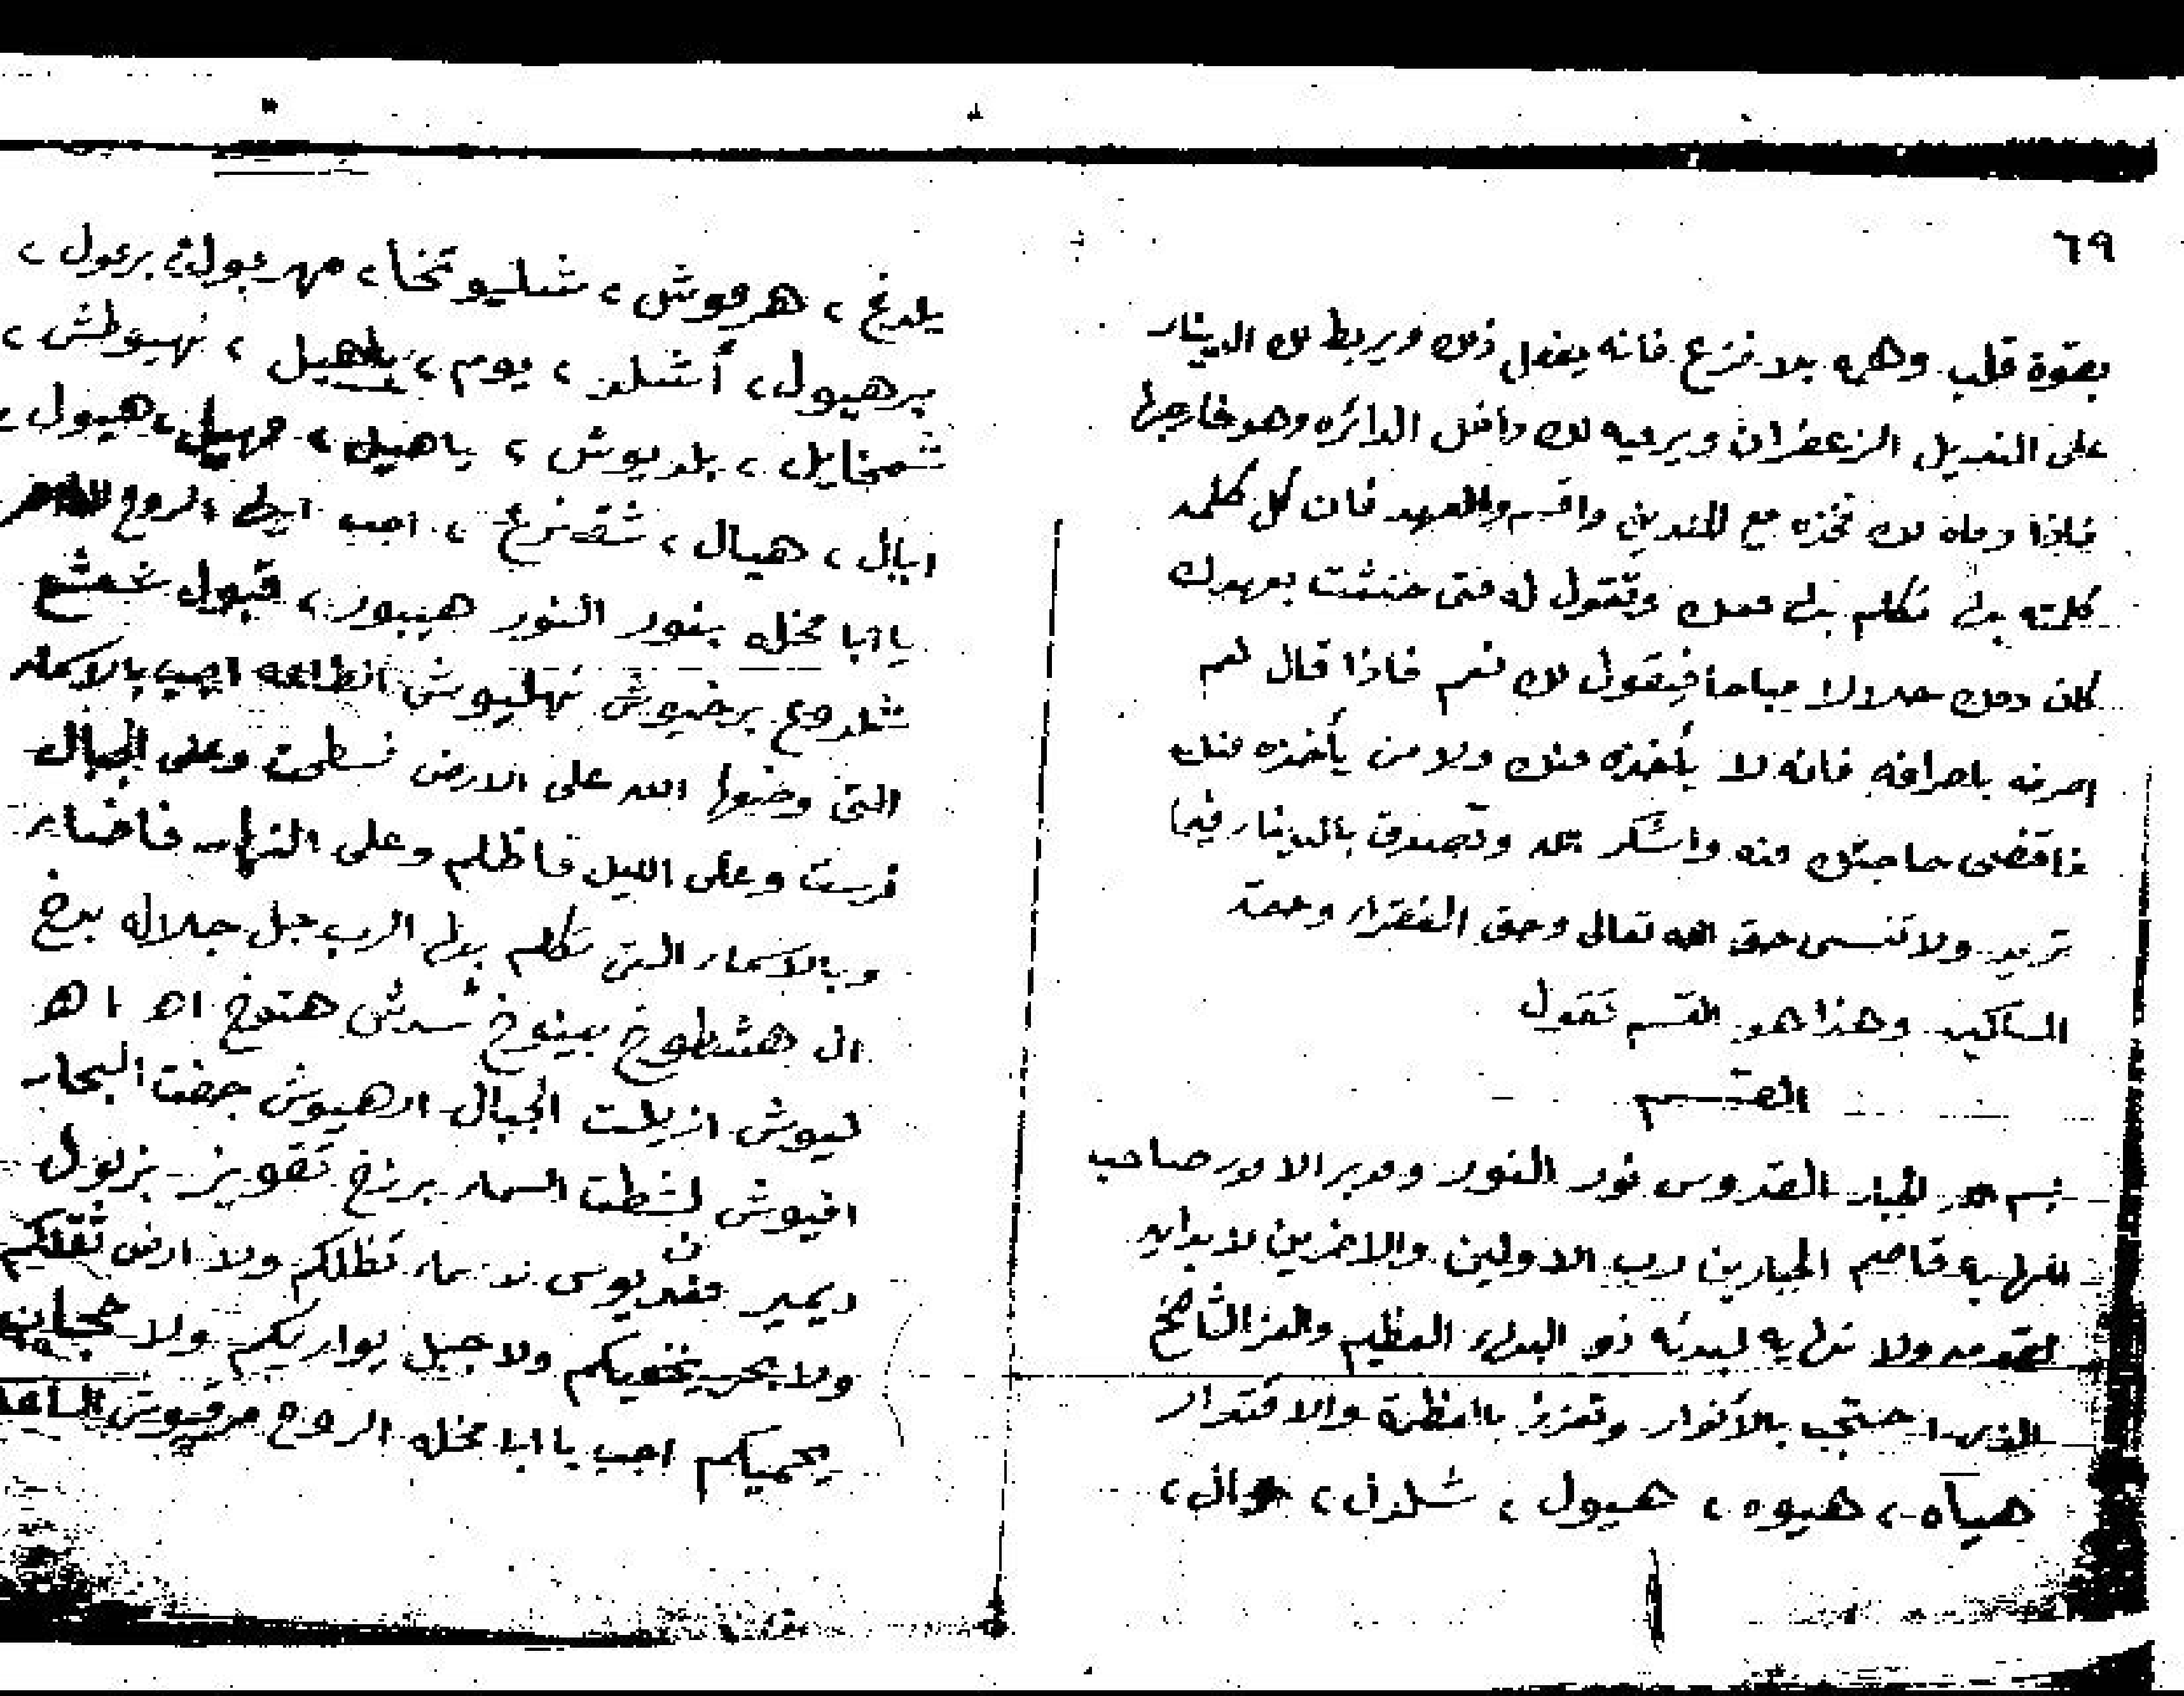 ٦٩
بقوة قلب وهمه بلا فزع فانه يفعل ذلك ويربط لك الدينار
على المنديل الزعفران ويرميه لك داخل الدائره وهو خارجها
فاذا رماه لك تخذه مع المنديل واقسم والعهد فان كل كلمه
كلمته بها تكلم بها معك وتقول له متى خنثت بعهدك
كان دمك حلالا مباحا فيقول لك نعم فاذا قال نعم
اصرفه باصرافه فانه لا يأخذه منك ولا من يأخذه منك
فاقضى حاجتك منه واشكر الله وتصدق بالدينار فيما
تريد ولا تنسى حق الله تعالى وحق الفقراء وحق
المساكين وهذا هو القسم تقول
القسم
بسم الله الجبار القدوس نور النور ومدبر الامور صاحب
قاصم الجبارين رب الاولين والاخرين لا بدايه
لقدمه ولا نهايه لبدئه ذو البهاء العظيم والعز الشامخ
الذى احتجب بالأنوار وتعزز بالعظمة والاقتدار
هياه، هيوه، هيول، شلدل،
يلدغ، هرموش، شليوتخا، مهرعول، برعول،
برهيول، أشلد، يوم، يلهيل، نهيوطش،
شمخايل، بلديوش، ياهيل، مهيل، هيول
ايال، هيال، شقزع، اجب ايها الروح
يا ابا مخله بنور النور هيبور، قبول
شلدوع برخيوش نهليوش الطاعه اجب بالاسماء
التى وضعها الله على الارض فسطحت وعلى الجبال
فرست وعلى الليل فاظلم وعلى النهار فاضاء
وبالاسماء التى تكلم بها الرب جل جلاله بدخ
ال هشطوخ بينوخ شدش هتوخ اه ا ه
ليوش ازيلت الجبال ارهيوش جفت البحار
افيوش لشطت السماء برزخ تقويز بزبول
ديمير مقديوس لا سماء تظلكم ولا ارض تقلكم
ولا بحر يخفيكم ولا جبل يواريكم ولا
يحميكم اجب يا ابا مخله الروح